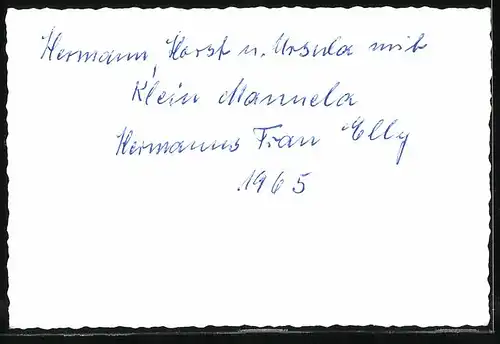 Hermann, Horst u. Ursula mit
Klein Manuela
Hermanns Frau Elly
.1965